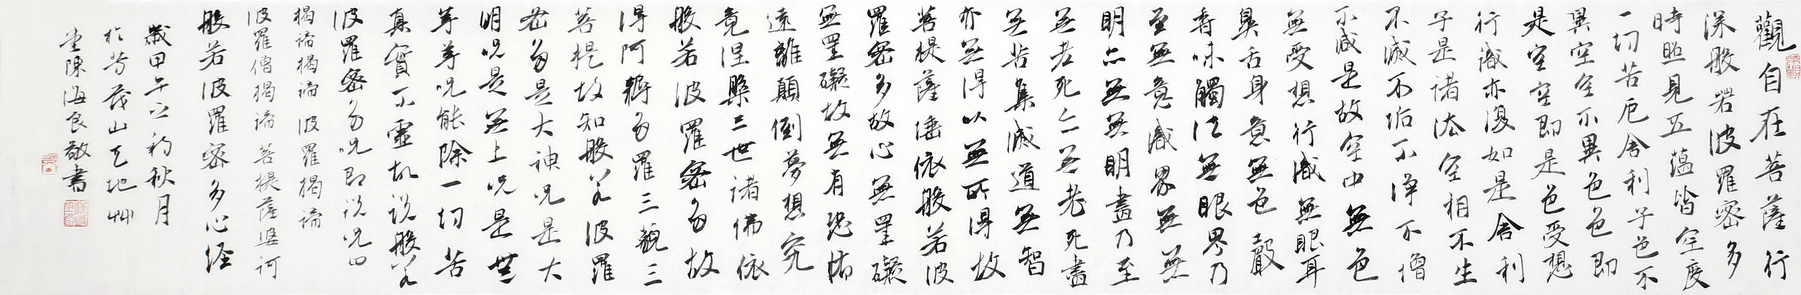 觀自在菩薩行
深般若波羅密多
時照見五蘊皆空度
一切苦厄舍利子色不
異空空不異色色即
是空空即是色受想
行識亦復如是舍利
子是諸法空相不生
不滅不垢不淨不增
不減是故空中無色
無受想行識無眼耳
鼻舌身意無色聲
香味觸法無眼界乃
至無意識界無無
明亦無無明盡乃至
無老死亦無老死盡
無苦集滅道無智
亦無得以無所得故
菩提薩埵依般若波
羅密多故心無罣礙
無罣礙故無有恐怖
遠離顛倒夢想究
竟涅槃三世諸佛依
般若波羅密多故
得阿耨多羅三藐三
菩提故知般若波羅
密多是大神咒是大
明咒是無上咒是無
等等咒能除一切苦
真實不虛故說般若
波羅密多咒即說咒曰
揭諦揭諦波羅揭諦
波羅僧揭諦菩提薩婆訶
般若波羅密多心經
歲甲午之初秋月
於芳茂山天地艸
堂陳海良敬書